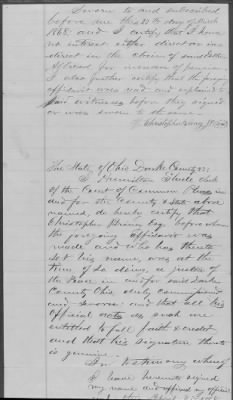 Sworn to and subscribed
before me this 21st day of March
1868 and I certify that I have
no interest either direct or in
direct in the claim of said
I also further certify that the foregoing
affidavit was read and explained to
said witnesses before they signed
or were sworn to the same
Christopher
The State of Ohio Darke County ss:
I Hamilton clerk
of the Court of Common Pleas in
and for the County & State above
named, do hereby certify that
Christopher Esq. before whom
the foregoing affidavit was
made and who has thereto
set his name, was at the
time of so doing a justice of
the Peace in and for said Darke
County Ohio, duly Commissioned
and Sworn: and that all his
official acts as such are
entitled to full faith & credit
and that his signature thereto
is genuine.
In testimony whereof
I have hereunto signed
my name and affixed my official